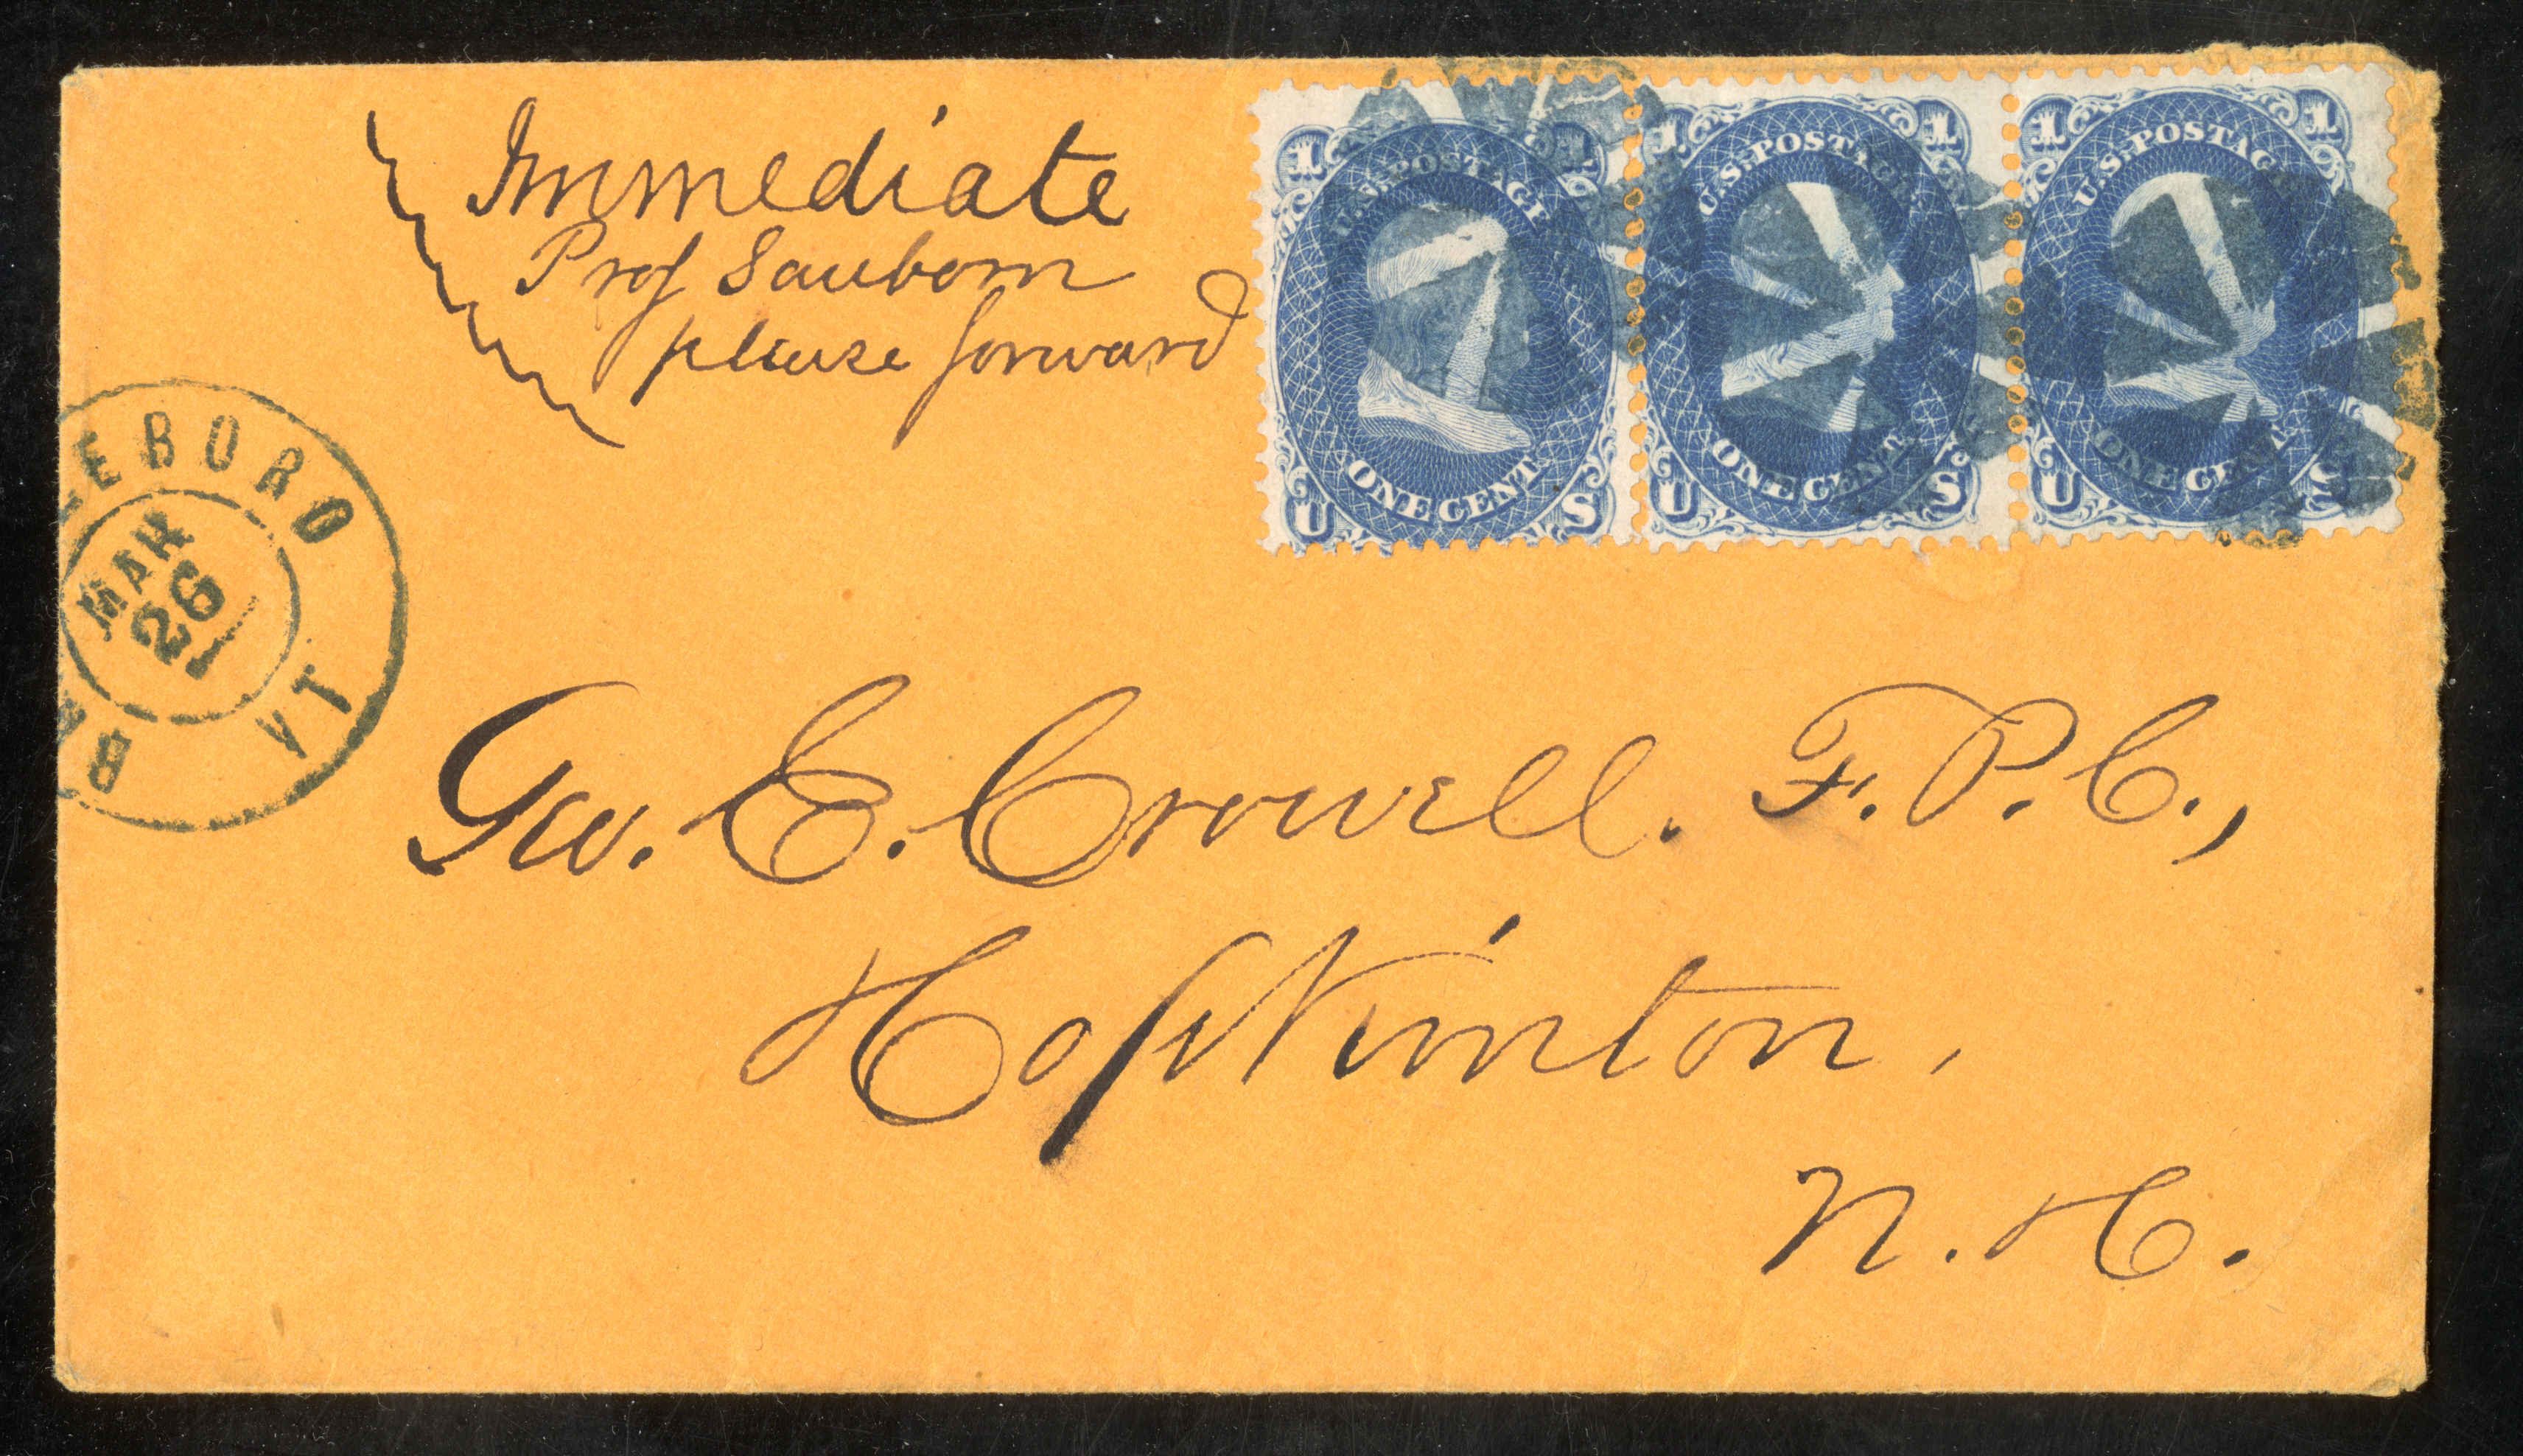 Immediate
Prof Sanborn
please forward
1 1
U.S. POSTAGE
ONE CENT
U S
1 1
U.S. POSTAGE
ONE CENT
U S
1 1
U.S. POSTAGE
ONE CENT
U S
LEBORO
MAR
26
VT
BRA
Geo. E. Crowell. F. P. C.,
Hopkinton,
N. H.